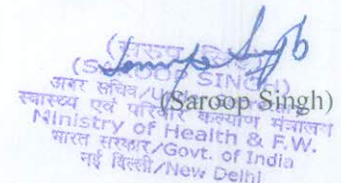 (सरूप सिंह)
(SAROOP SINGH)
अवर सचिव/U
(Saroop Singh)
स्वास्थ्य एवं परिवार कल्याण मंत्रालय
Ministry of Health & F.W.
भारत सरकार/Govt. of India
नई दिल्ली/New Delhi